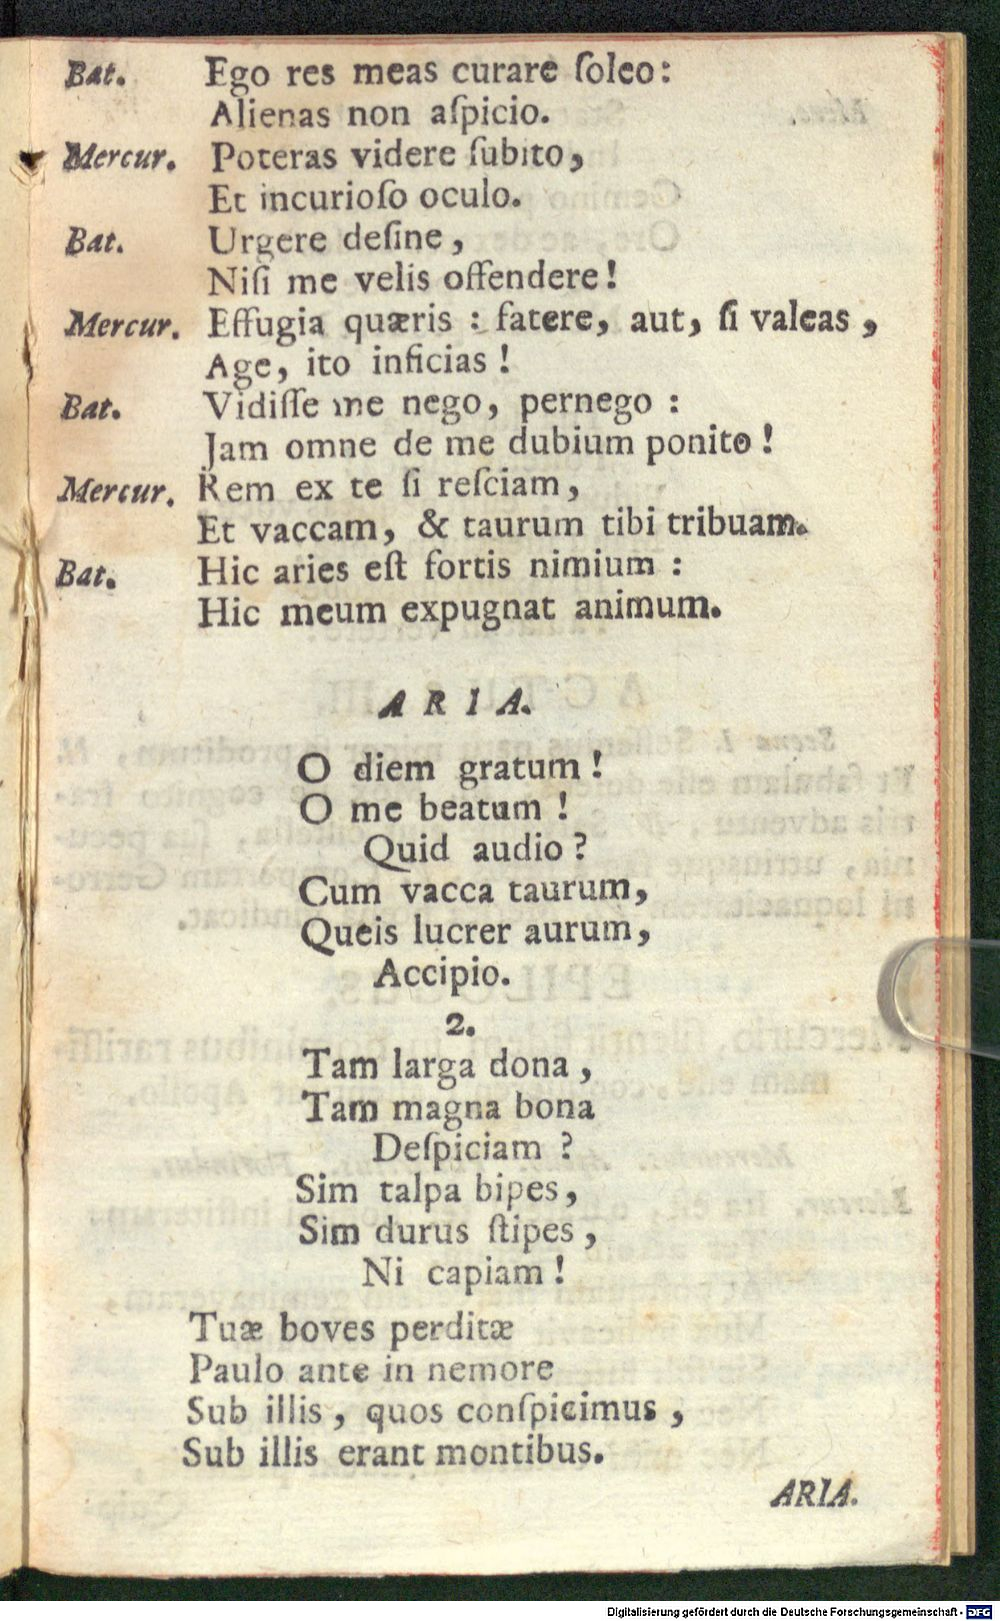 Bat. Ego res meas curare ſoleo:
Alienas non aſpicio.
Mercur. Poteras videre ſubito,
Et incurioſo oculo.
Bat. Urgere deſine,
Niſi me velis offendere!
Mercur. Effugia quæris : fatere, aut, ſi valeas,
Age, ito inficias!
Bat. Vidiſſe me nego, pernego :
Jam omne de me dubium ponito!
Mercur. Rem ex te ſi reſciam,
Et vaccam, & taurum tibi tribuam.
Bat. Hic aries eſt fortis nimium :
Hic meum expugnat animum.
ARIA.
O diem gratum!
O me beatum!
Quid audio?
Cum vacca taurum,
Queis lucrer aurum,
Accipio.
2.
Tam larga dona,
Tam magna bona
Deſpiciam?
Sim talpa bipes,
Sim durus ſtipes,
Ni capiam!
Tuæ boves perditæ
Paulo ante in nemore
Sub illis, quos conſpicimus,
Sub illis erant montibus.
ARIA.
Digitalisierung gefördert durch die Deutsche Forschungsgemeinschaft - DFG